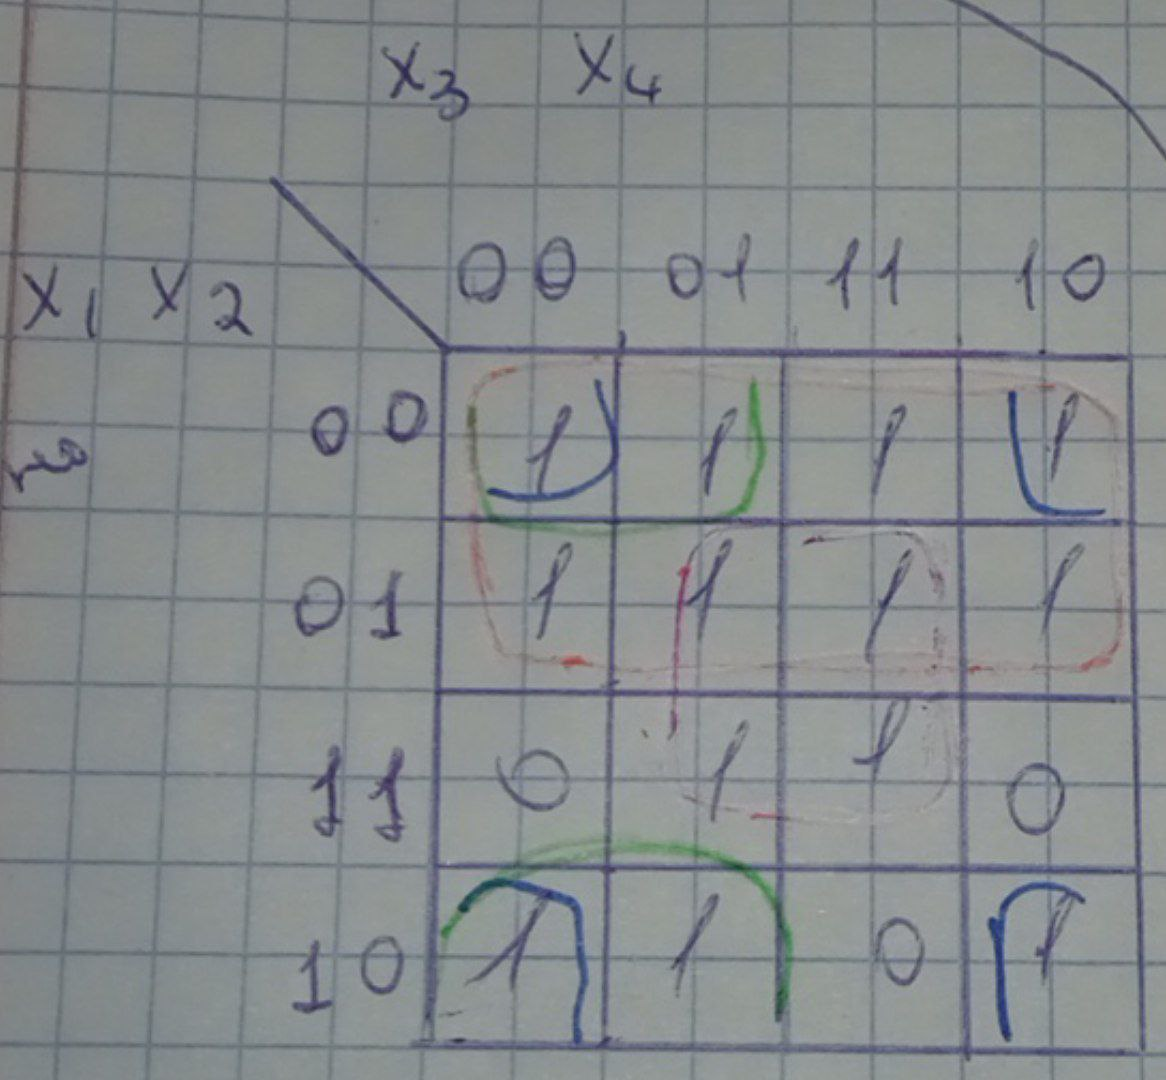 x3 x4
x1 x2
00 01 11 10
00 1 1 1 1
01 1 1 1 1
11 0 1 1 0
10 1 1 0 1